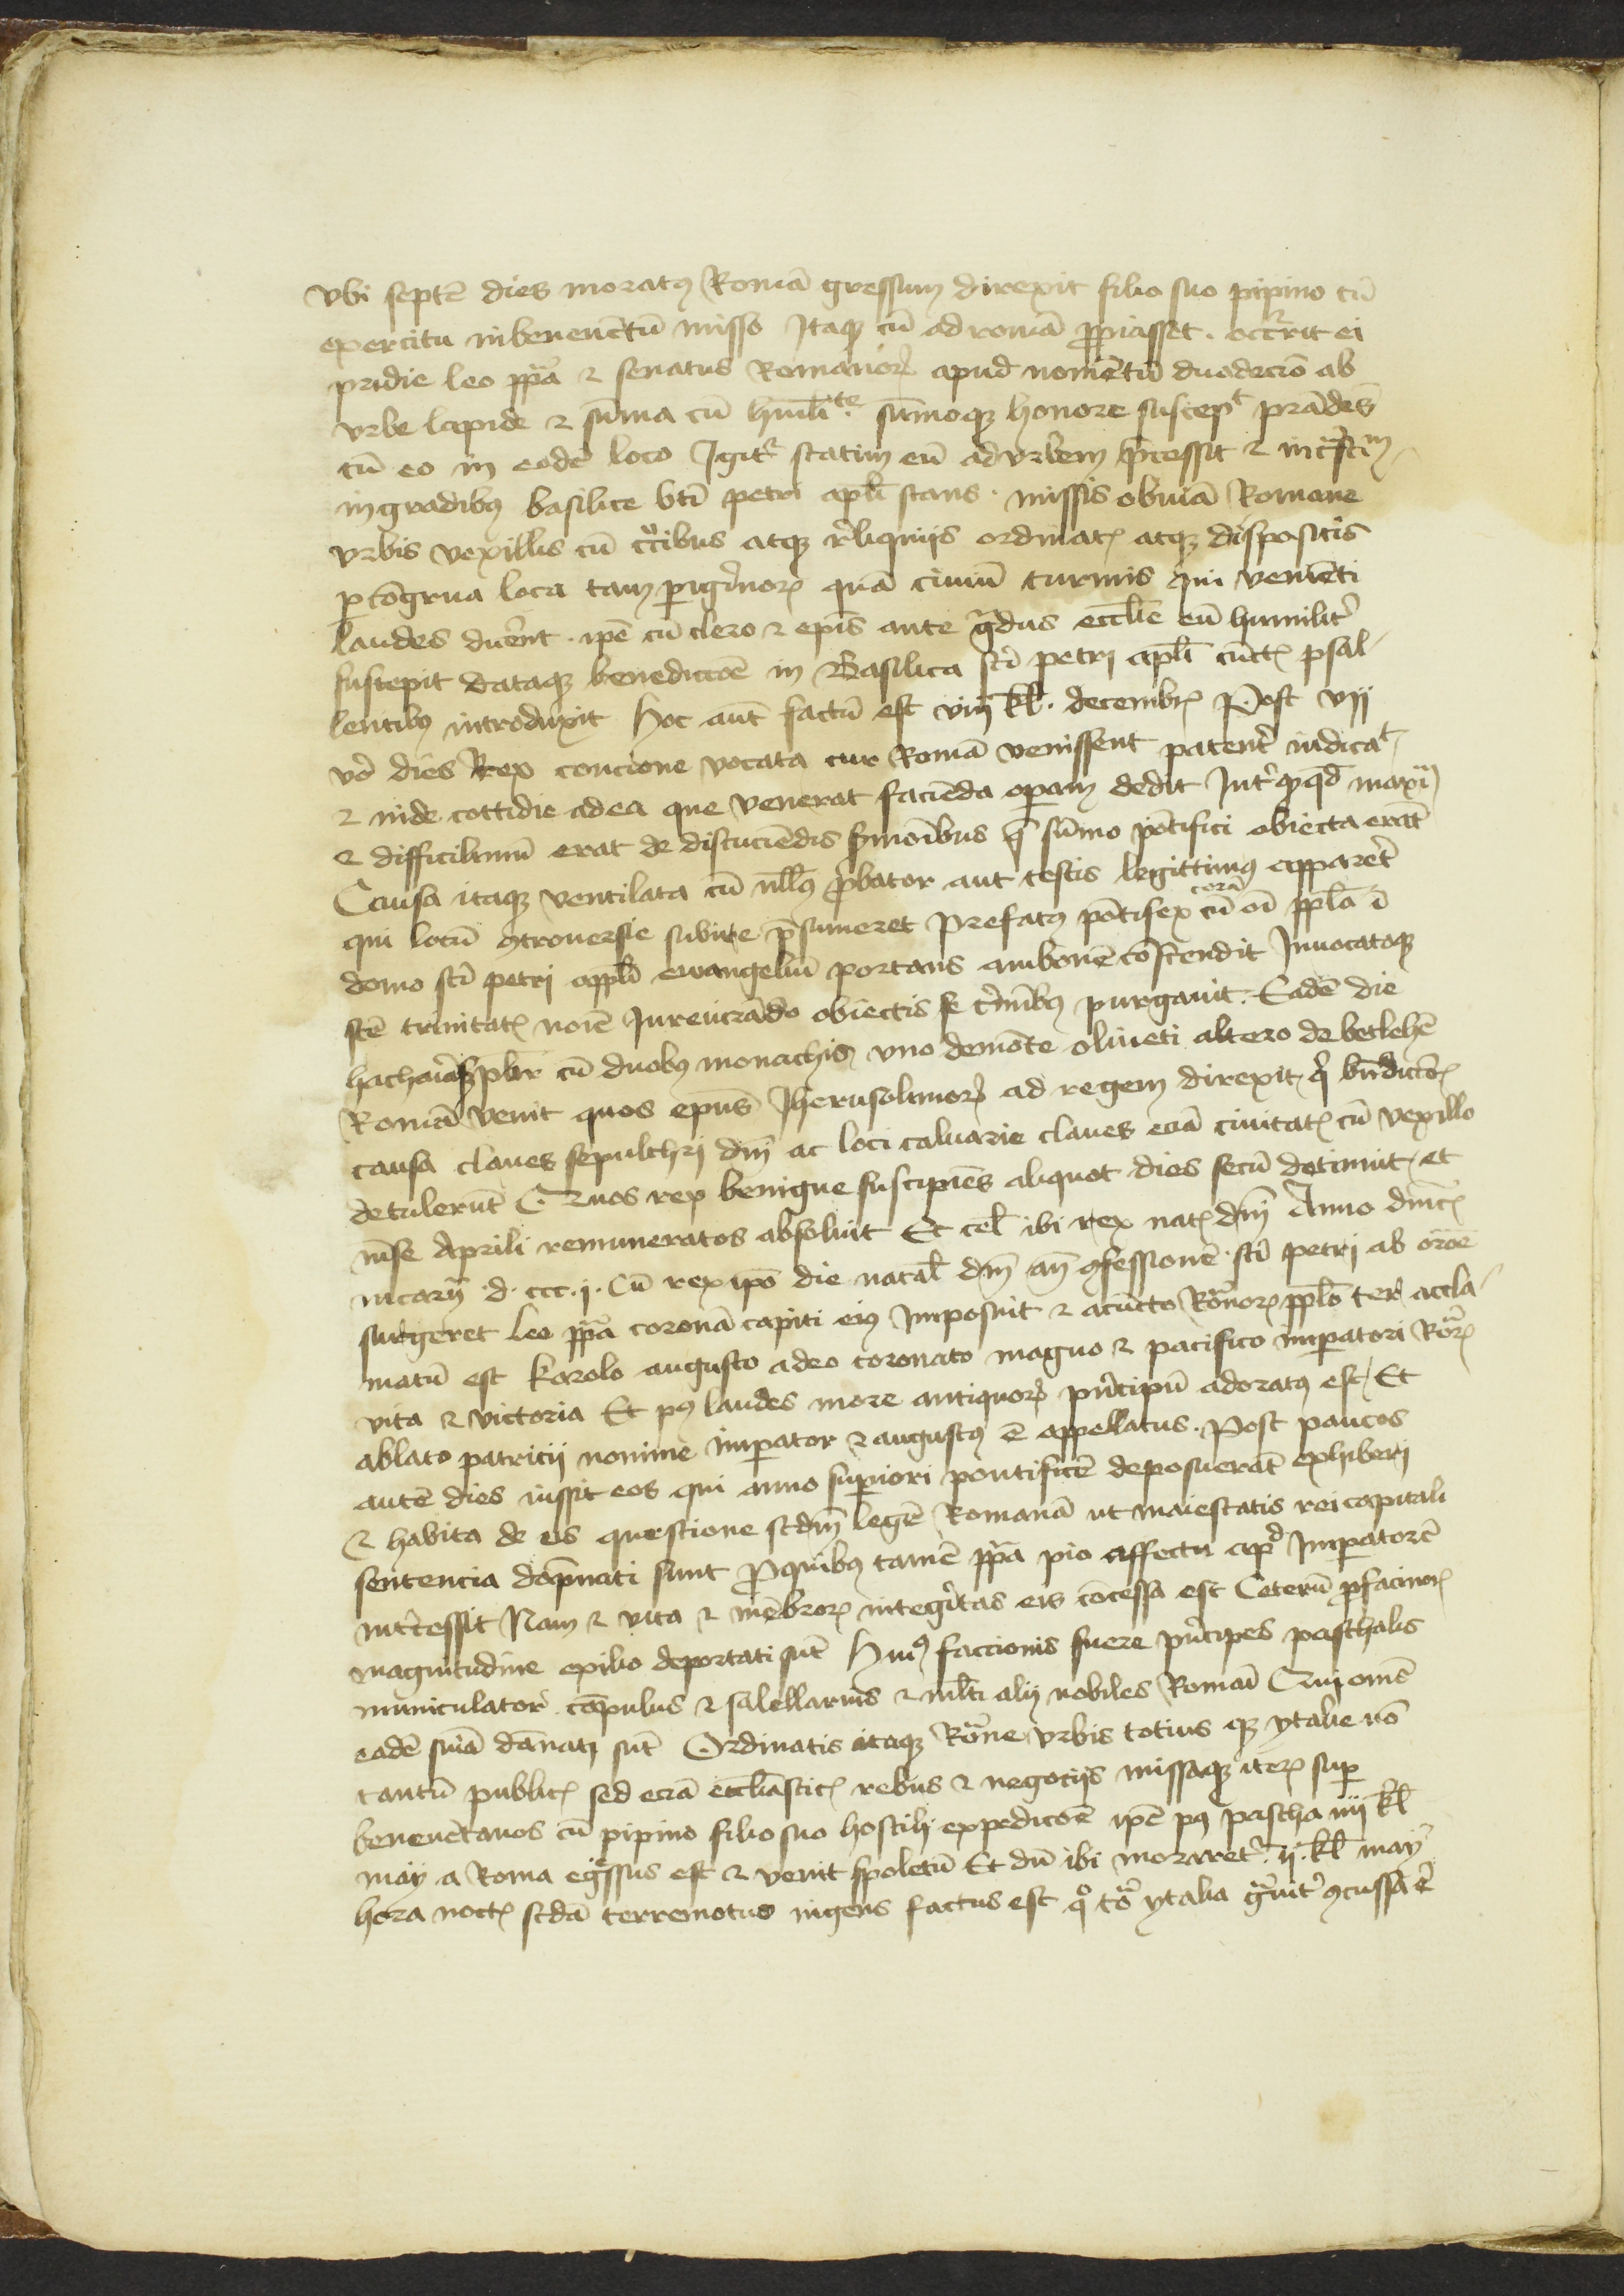 vbi septē dies moratꝰ Romā gressum direxit filio suo pipino cū
exercitu in beneuētū misso Itaqꝫ cū ad romā ꝓpiasset . occᵘrrit ei
pridie leo ppᵃ ⁊ senatus Romanoꝝ apud nomētū duodecīo ab
vrbe lapide ⁊ sūma cū hūiliᵗᵉ . sūmoqꝫ honore suscepᵗ prādēs
cū eo in eodē loco Igitᵘr statim eū ad vrbem p̄cessit ⁊ in cᵃstinᵘᵐ
in gradibꝰ basilice bti petri apli stans . missis obuiā Romane
vrbis vexillis cū cͨibus atqꝫ r̄liquijs ordinatꝭ atqꝫ dispositis
ꝑ cōgrua loca tam ꝑigͥnoꝝ quā ciuiū turmis qui veniēti
laudes dicēnt . ip̄e cū clero ⁊ ep̄is ante gᵃdus eccl̄ie eū humilit̄
suscepit dataqꝫ benedictōe in Basilica sti petri apl̄i cūctꝭ psal-
lentibꝰ introduxit Hoc aūt factū est viij kl . decembrꝭ Post vij
v̊o dies Rex concione vocata cur Romā venissent patent̄ indicaᵗ
⁊ inde cottidie ad ea que venerat faciēda oꝑam dedit Int̄ q̄ qd̄ maxīᵘᵐ
⁊ difficilimū erat de discuciēdis crīoībus q̄ sūmo pōtifici obiecta erāt
Causa itaqꝫ ventilata cū nllꝰ ꝓbator aut testis legittimꝰ apparēt
qui locū ꝯtrouersie subire p̄sumeret Prefatꝰ pōtifex cū corā oī ppl̄o ī
domo sti petri appl̄i ewangeliū portans ambonē cōscendit Inuocatoqꝫ
scē trinitatꝭ noīe Iureiurādo obiectis se crīinibꝰ purgauit . Eadē die
hacharias pbr cū duobꝰ monachis vno de mōte oliueti altero de betlehē
Romā venit quos ep̄us Iherusolimoꝝ ad regem direxit . q̄ bn̄dictōꝭ
causa claues sepulchri dnī ac loci caluarie claues eciā ciuitatꝭ cū vexillo
detulerūt Quos rex benigne suscipiēs aliquot dies secū detinuit . et
mēse Aprili remuneratos absoluit Et cel̄ ibi rex natꝭ dnī Anno dnīcꝭ
incarn̄ . d . ccc . j . Cū rex ip̄o die natal̄ dnī an̄ ꝯfessionē sti petri ab oroē
surgeret leo ppᵃ coronā capiti eiꝰ Imposuit ⁊ a cūcto Rōnoꝝ ppl̄o ter accla-
matū est karolo augusto a deo coronato magno ⁊ pacifico imperatori Rōꝝ
vita ⁊ victoria Et pꝰ laudes more antiquoꝝ pn̄cipū adoratꝰ est / Et
ablato patricij nomine imperator ⁊ augustꝰ ē appellatus . Post paucos
autē dies iussit eos qui anno superiori pontificē deposuerāt exhiberi
⁊ habita de eis questione scdm̄ legē Romanā ut maiestatis rei capitali
sentencia dāpnati sunt Pro quibus tamē ppᵃ pio affectu apᵈ Imperatorē
int̄cessit Nam ⁊ vita ⁊ mēbroꝝ integͥtas eis cōcessa est Ceterū ꝓ facinoꝝ
magnitudine exilio deportati sūt Huiꝰ faccionis fuere pn̄cipes paschalis
municulator cāpulus ⁊ salellarius ⁊ ml̄ti alij nobiles Romāi Qui omēs
eadē sn̄iā dānati sūt Ordinatis itaqꝫ Rōne vrbis totius qꝫ ytalie nō
tantū publicꝭ sed eciā eccl̄iasticꝭ rebus ⁊ negocijs missaqꝫ iteꝝ suꝑ
beneuētanos cū pipino filio suo hostili expedicōe ip̄e pꝰ pascha iiij kl̄
maij a Roma egᵉssus est ⁊ venit spoletū Et dū ibi moraretᵘr . ij . kl̄ maij
hora noctꝭ scdā terremotus ingens factus est qᵒ tōᵃ ytalia gᵃuit̄ ꝯcussa ē